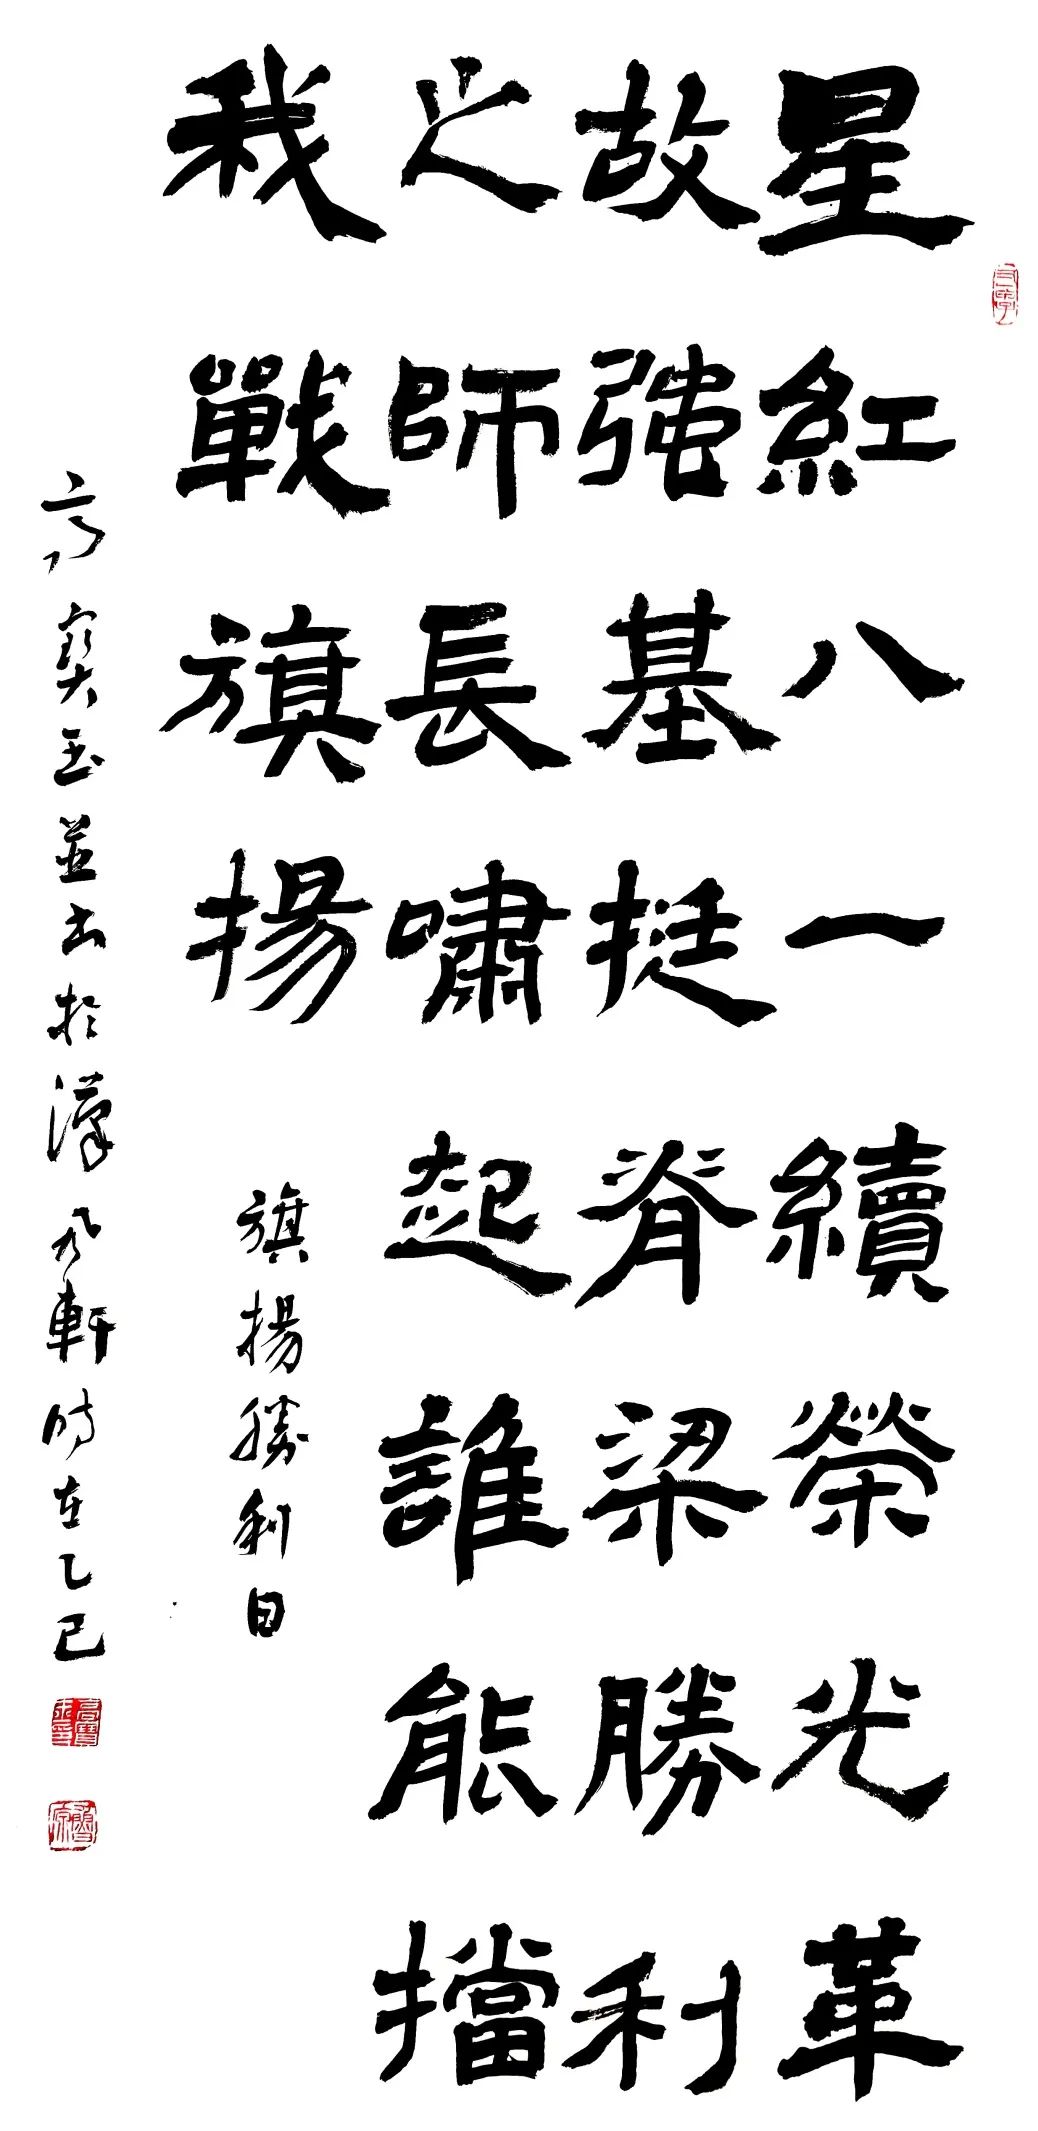 星紅八一續榮光革
故強基挺脊梁勝利
之師長嘯起誰能擋
我戰旗揚
旗揚勝利日
高寶玉並書於漢風軒時在乙巳